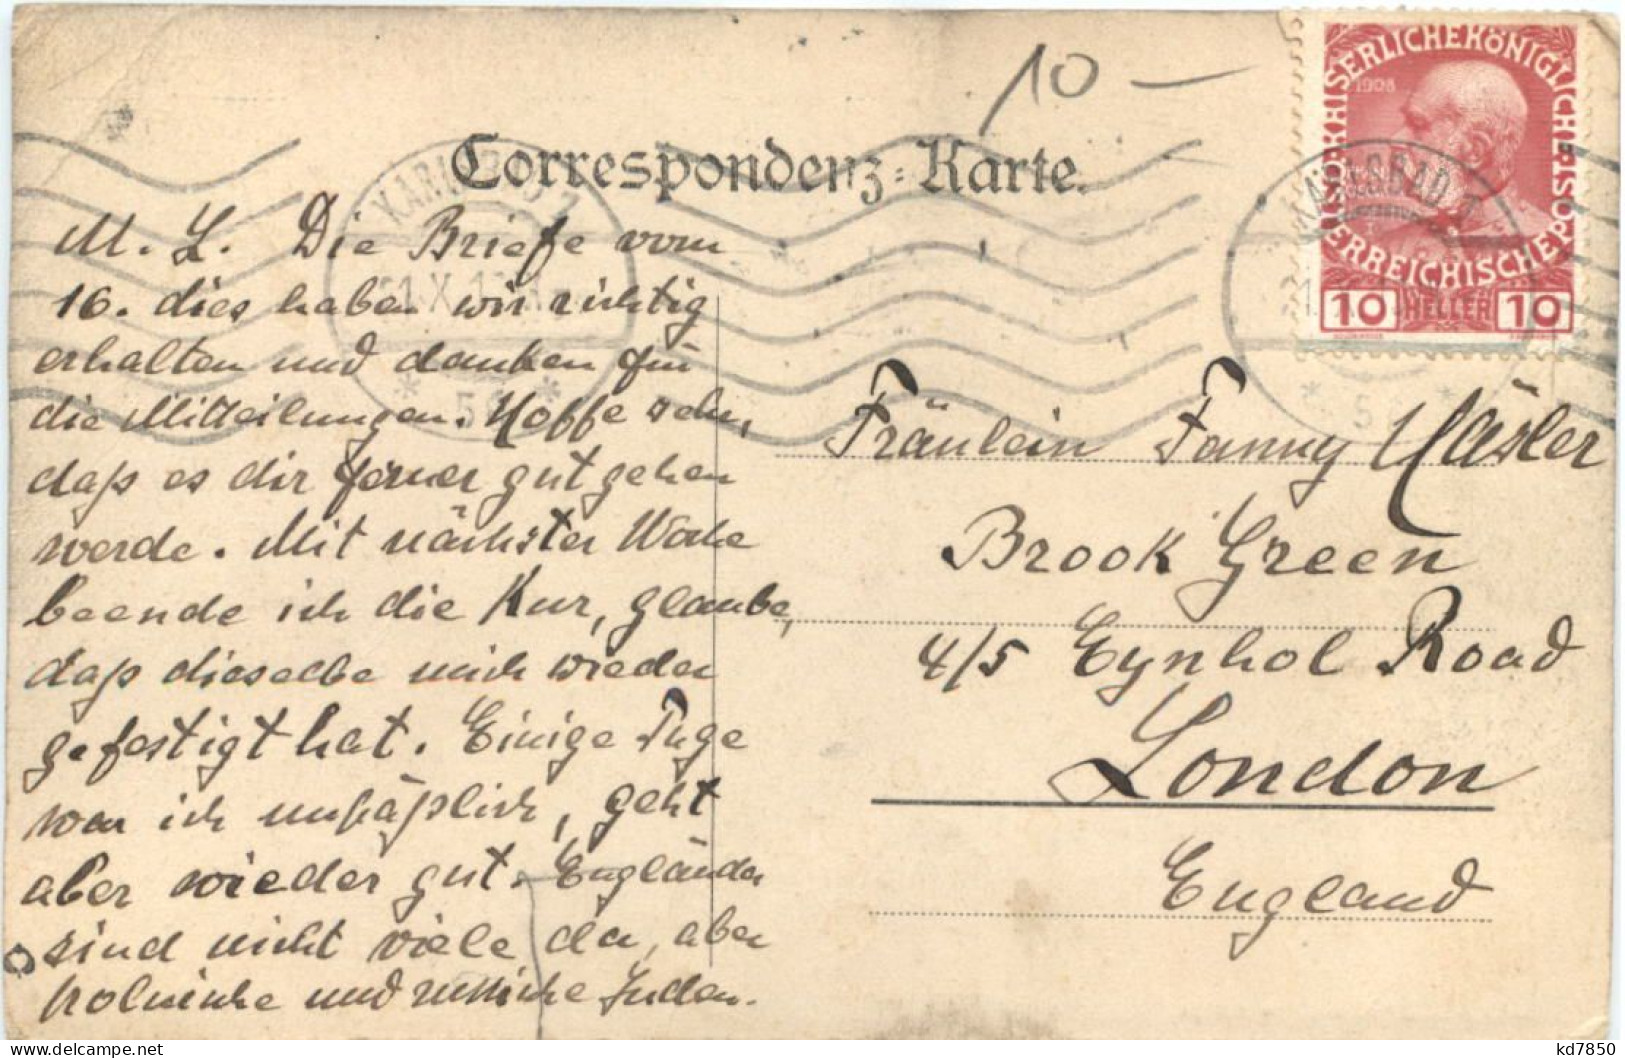 10 —
Correspondenz-Karte.
KAISERLICHEKÖNIGLICHE ÖSTERREICHISCHE POST
1908
10 HELLER 10
KARLSBAD 7
KARLSBAD 7
* 5 *
* 5 *
M. L. Die Briefe vom
16. dies haben wir richtig
erhalten und danken für
die Mitteilungen. Hoffe sehr,
daß es dir ferner gut gehen
werde. Mit nächster Woche
beende ich die Kur, glaube,
daß dieselbe mich wieder
gefestigt hat. Einige Tage
war ich unpäßlich, geht
aber wieder gut. Engländer
sind nicht viele da, aber
polnische und russische Juden.
Fräulein Fanny Häsler
Brook Green
4/5 Eynhol Road
London
England
kd7850